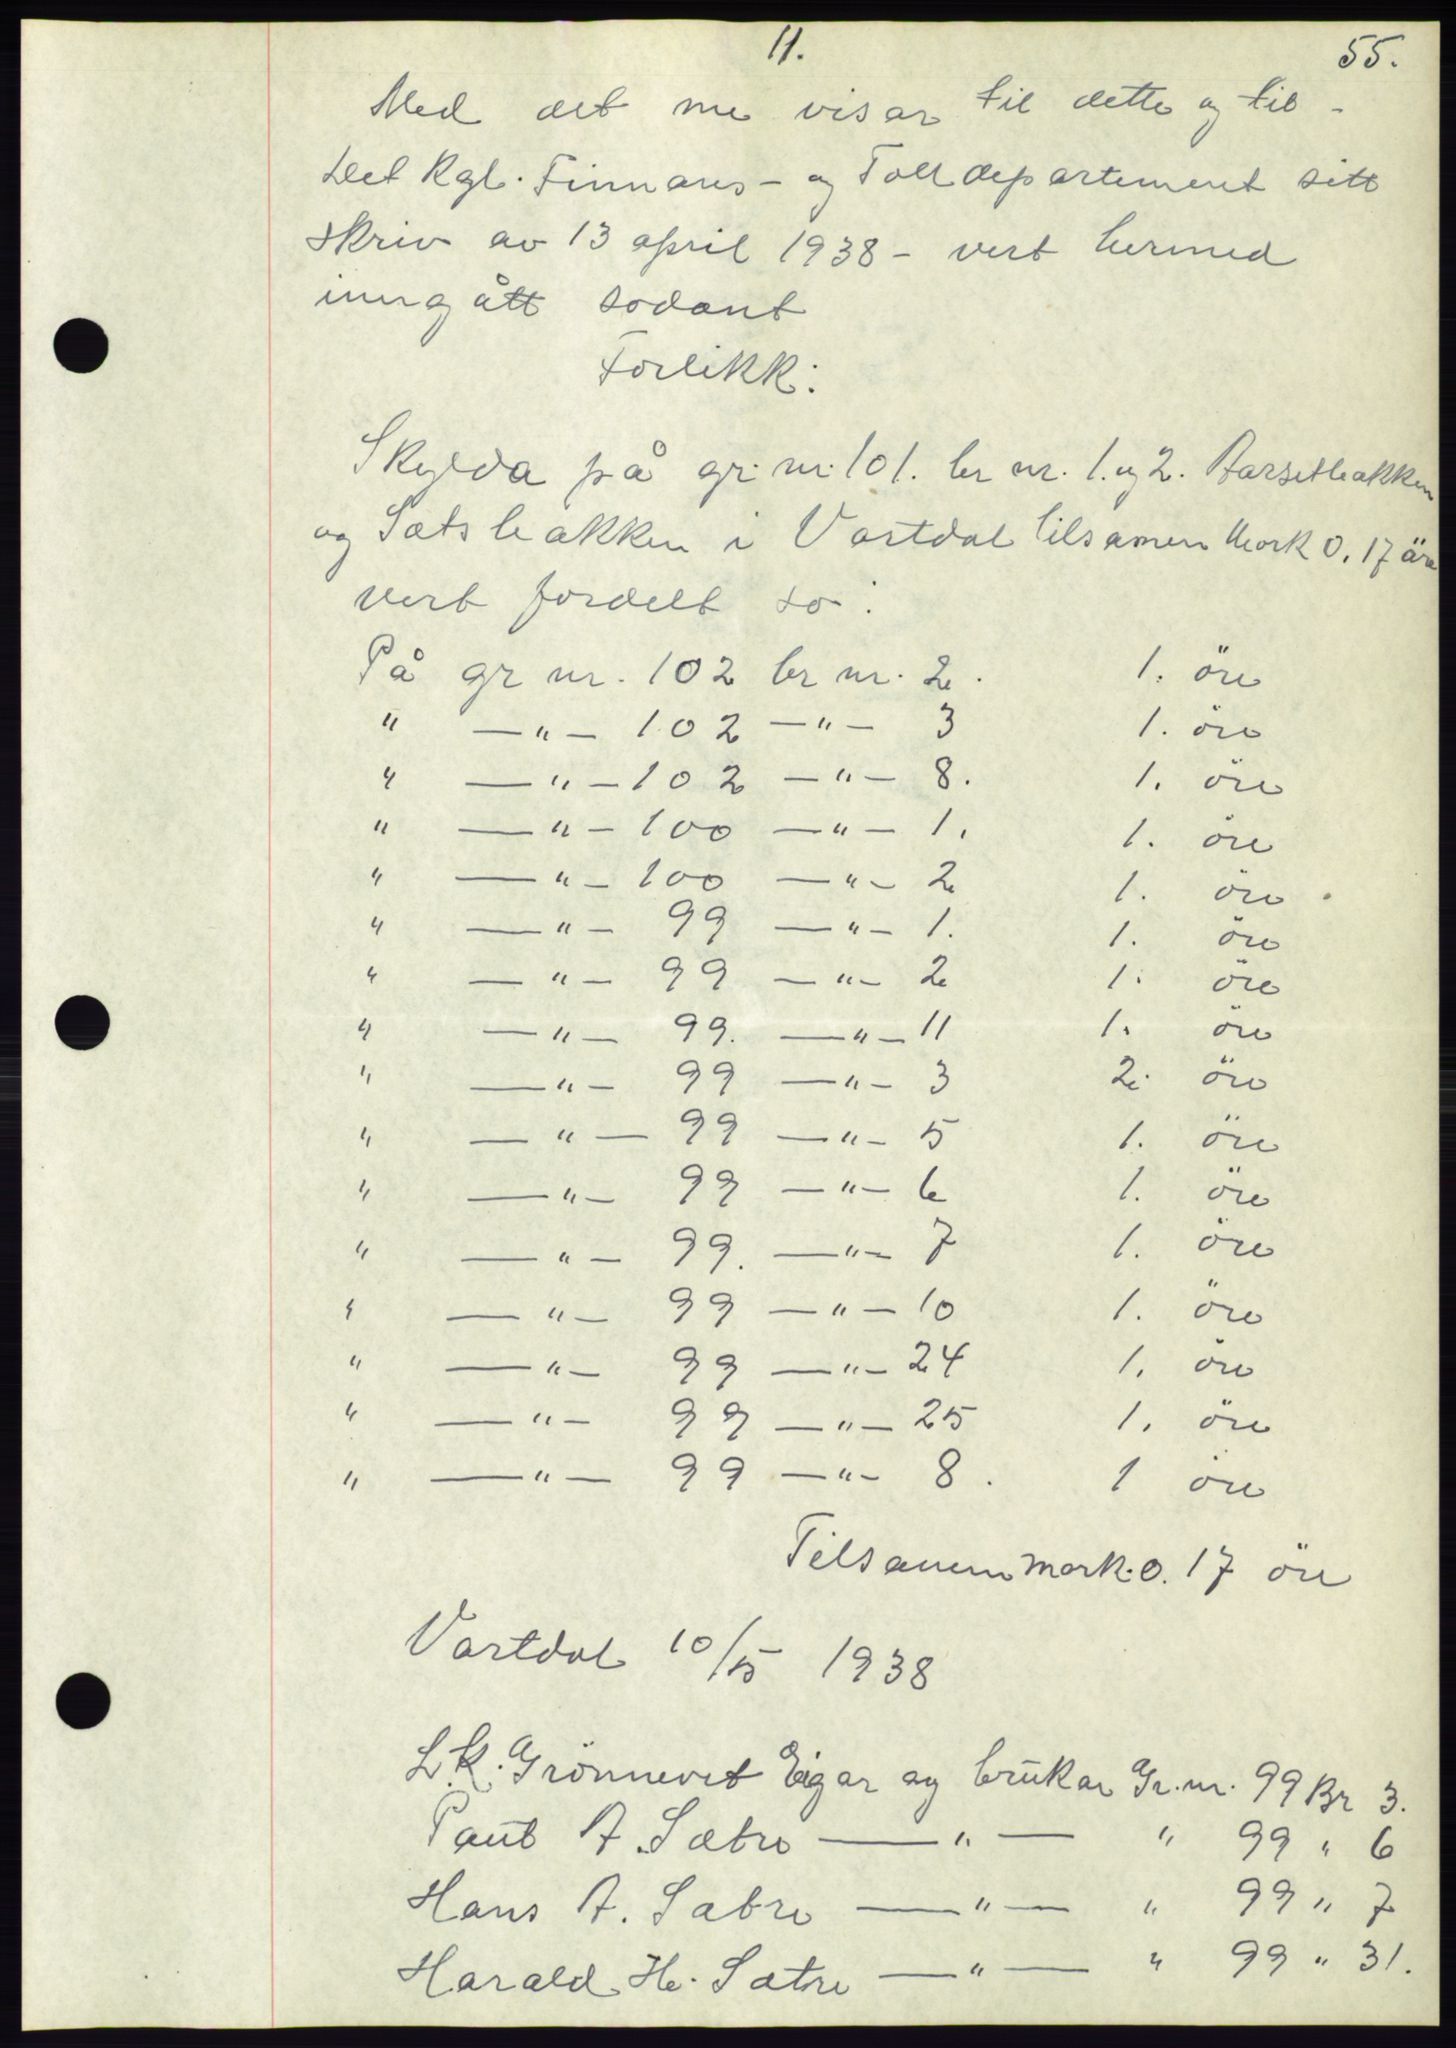 11.
55.
Med det me visar til dette og til -
Det Kgl. Finnans- og Tolldepartement sitt
skriv av 13 april 1938 - vert hermed
inngått sodant
Forlikk:
Skylda på gr. nr. 101. br nr. 1. og 2. Aarsetbakken
og Sætsbakken i Vartdal tilsamen Mork 0.17 öre
vert fordelt so:
På gr nr. 102 br nr. 2. 1. öre
" —"— 102 —"— 3 1. öre
" —"— 102 —"— 8. 1. öre
" —"— 100 —"— 1. 1. öre
" —"— 100 —"— 2 1. öre
" —"— 99 —"— 1. 1. öre
" —"— 99 —"— 2 1. öre
" —"— 99. —"— 11 1. öre
" —"— 99 —"— 3 2. öre
" —"— 99 —"— 5 1. öre
" —"— 99 —"— 6 1. öre
" —"— 99. —"— 7 1. öre
" —"— 99 —"— 10 1. öre
" —"— 99 —"— 24 1. öre
" —"— 99 —"— 25 1. öre
" —"— 99 —"— 8. 1 öre
Tilsamen mork. 0.17 öre
Vartdal 10/5 1938
L.K. Grönnevet Eigar og brukar Gr. nr. 99 Br 3.
Paul A. Sætre —"— " 99 " 6
Hans A. Sætre —"— " 99 " 7
Harald H. Sætre —"— " 99 " 31.